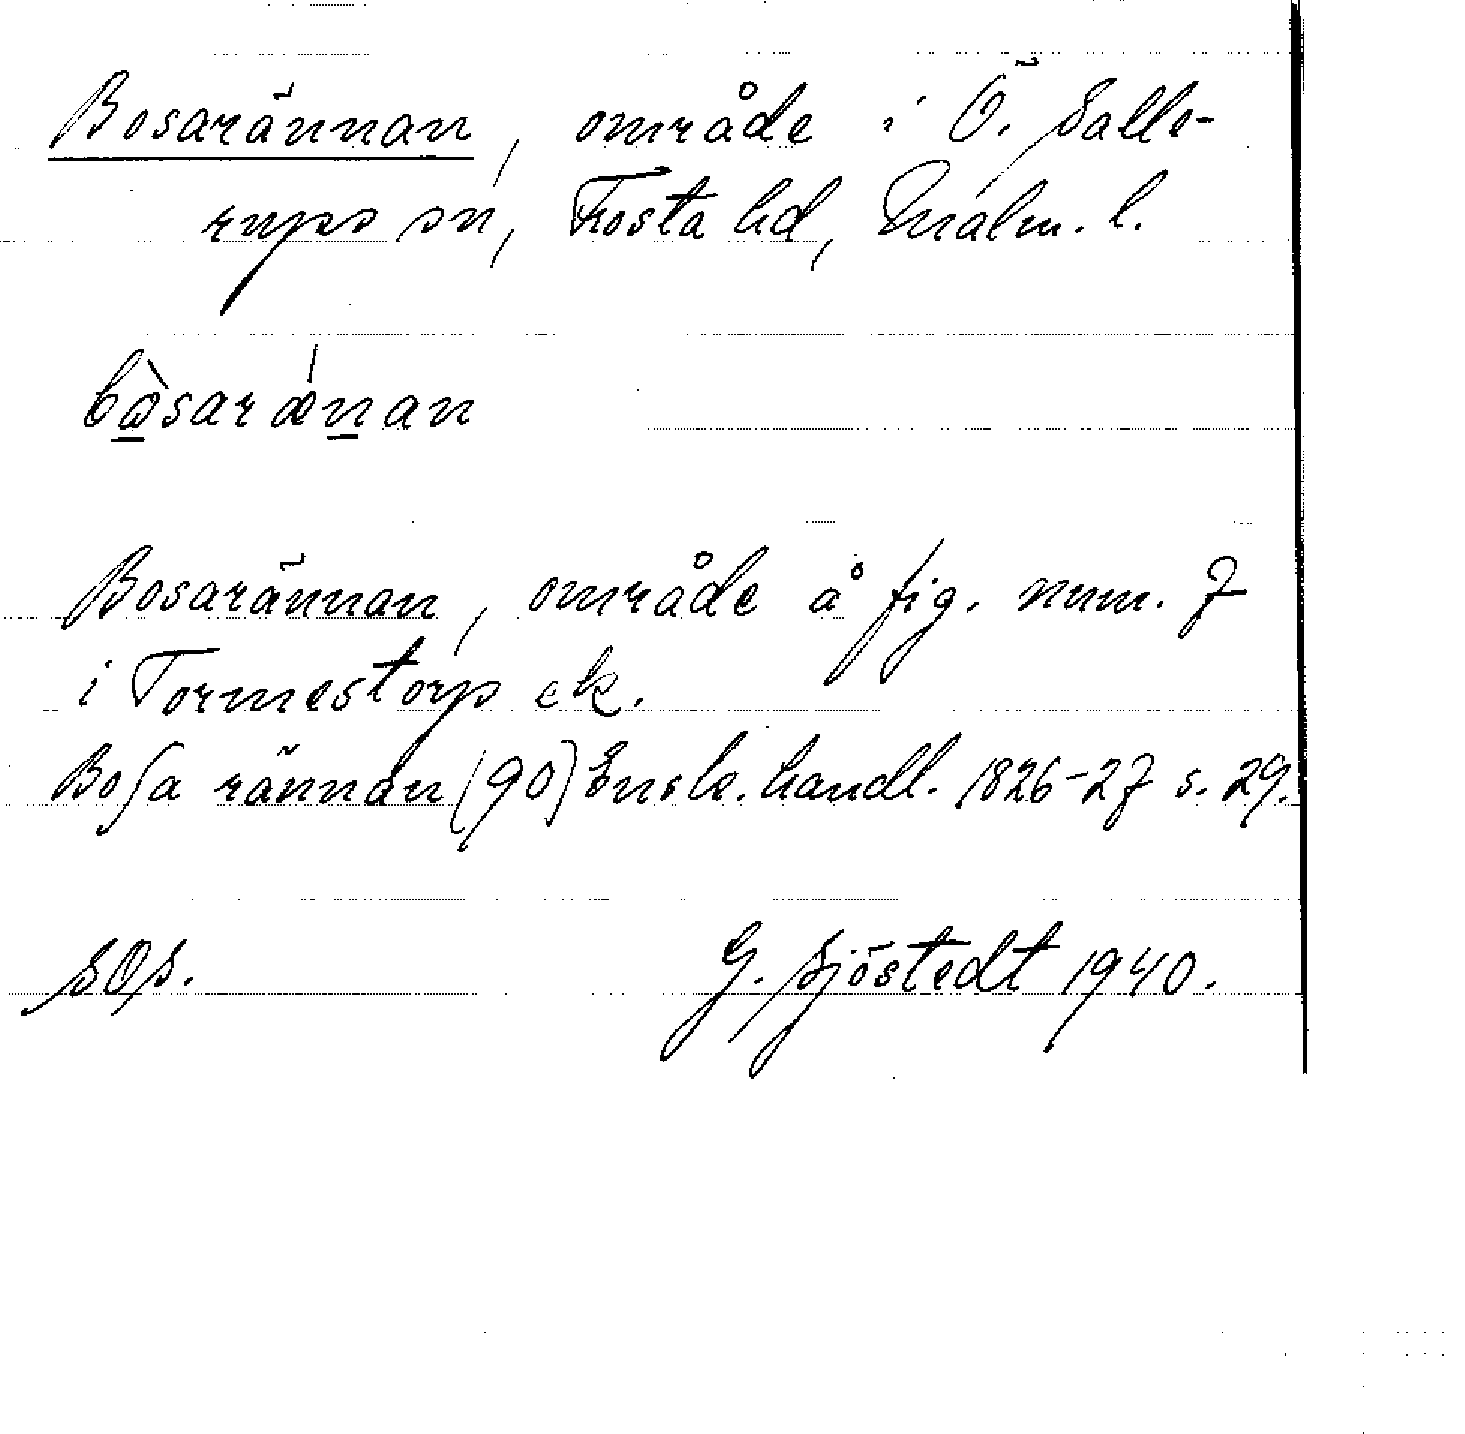 Bosarännan, område i Ö. Salle-
rups sn, Frosta hd, Malm. l.
bꜵ̀saræ̍nan
Bosarännan, område å fig. num. 7
i Tormestorp ek.
Boſa rännan (90) Ensk. handl. 1826-27 s. 29.
SOS.
G. Sjöstedt 1940.